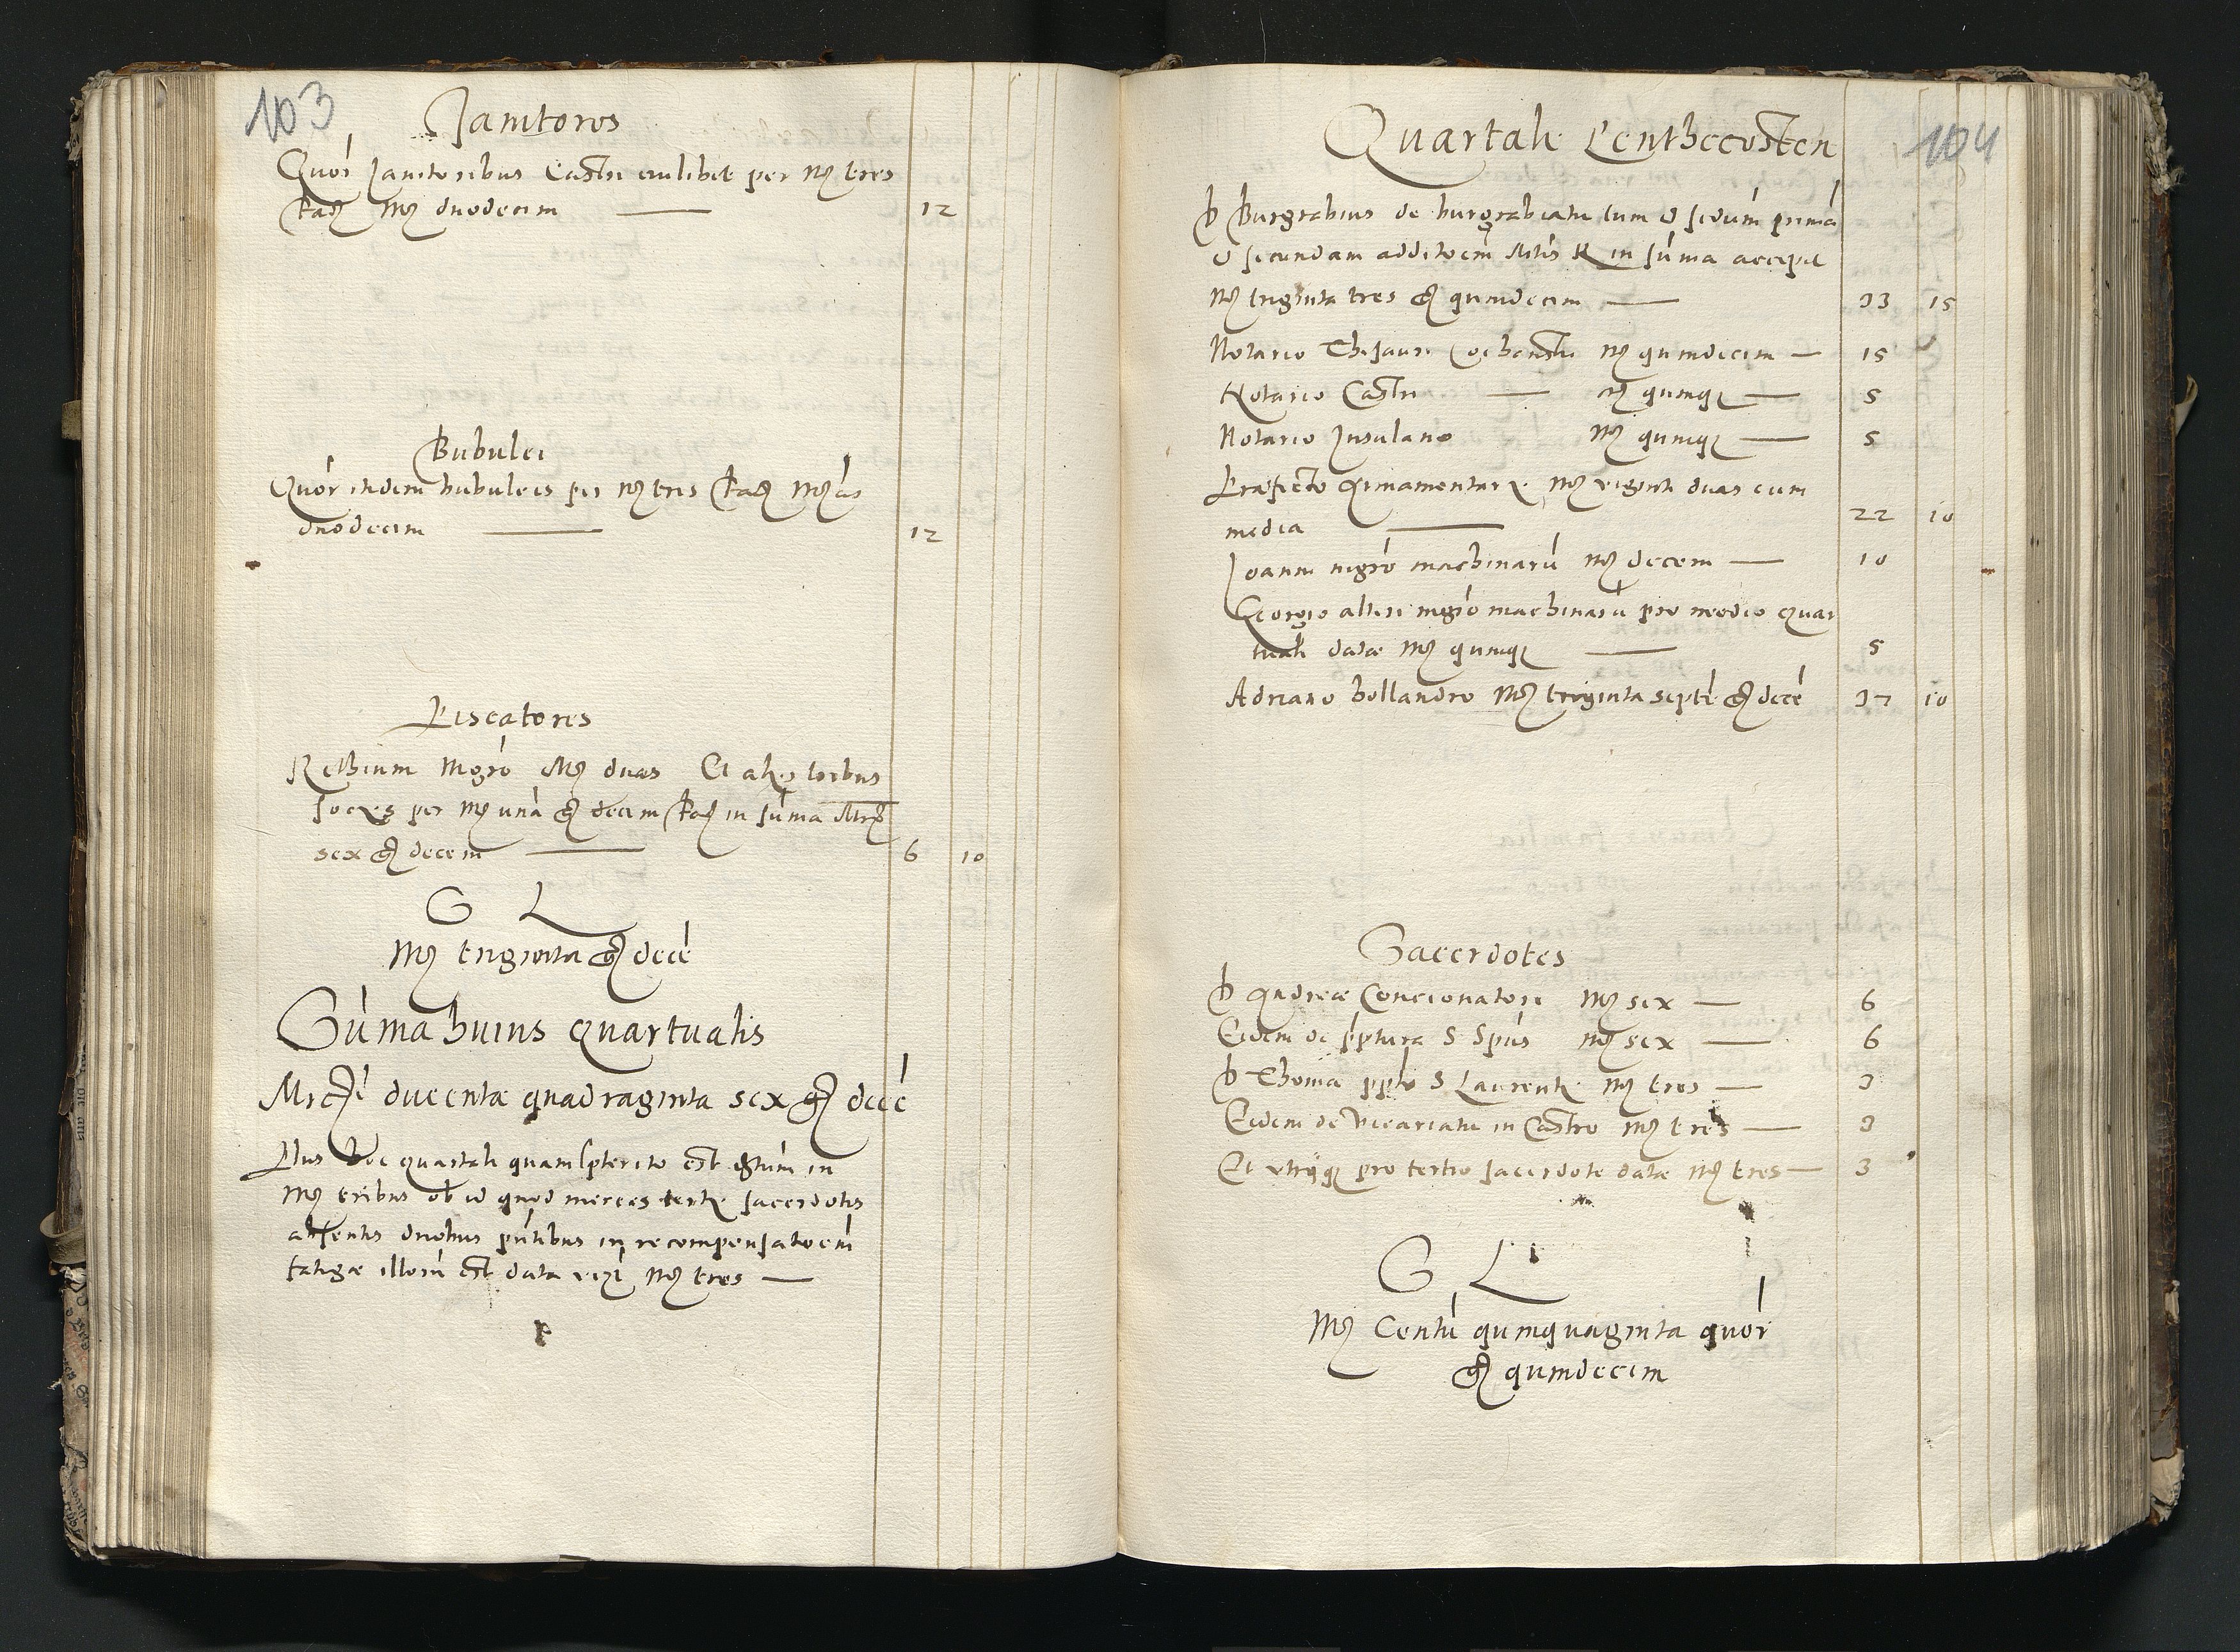 103
Janitores
Quor Janitoribus Castri cuilibet per mr tres
fac mr duodecim — 12
Bubulci
Quor itidem bubulcis per mr tres fac mr as
duodecim — 12
Piscatores
Rethium mgro mr duas Et alys tribus
socys per mr una g decem fac in suma mrs
sex g decem — 6 10
S L
mr triginta g dece
Suma huius quartualis
ducentæ quadraginta sex g dece
Plus hoc quartali quam pterito est in
mr tribus ob id quod merces terty sacerdotis
absentis duobus pntibus in recompensatoem
fatigæ illoru est data mr tres —
104
Quartale Penthecosten
D Burgrabius de burgrabiatu tum et scdum prima
et secundam additoem Mtis R in suma accepit
mr triginta tres g quindecim — 33 15
Notario Thesauri mr quindecim — 15
Notario Castri — mr quinq — 5
Notario Insulano mr quinq — 5
Præfecto Armamentary mr viginti duas cum
media — 22 10
Joanni mgro machinaru mr decem — 10
Georgio alteri mgro machinaru pro medio quar
tuali datæ mr quinq — 5
Adriano hollandro mr triginta septe g dece 37 10
Sacerdotes
D Andreæ Concionatori mr sex — 6
Eidem de pptura S Spus mr sex — 6
D Thoma ppto S Laurenty mr tres — 3
Eidem de Vicariatu in Castro mr tres — 3
Et utriq pro tertio sacerdote datæ mr tres — 3
S L
mr Centu quinquaginta quor
g quindecim